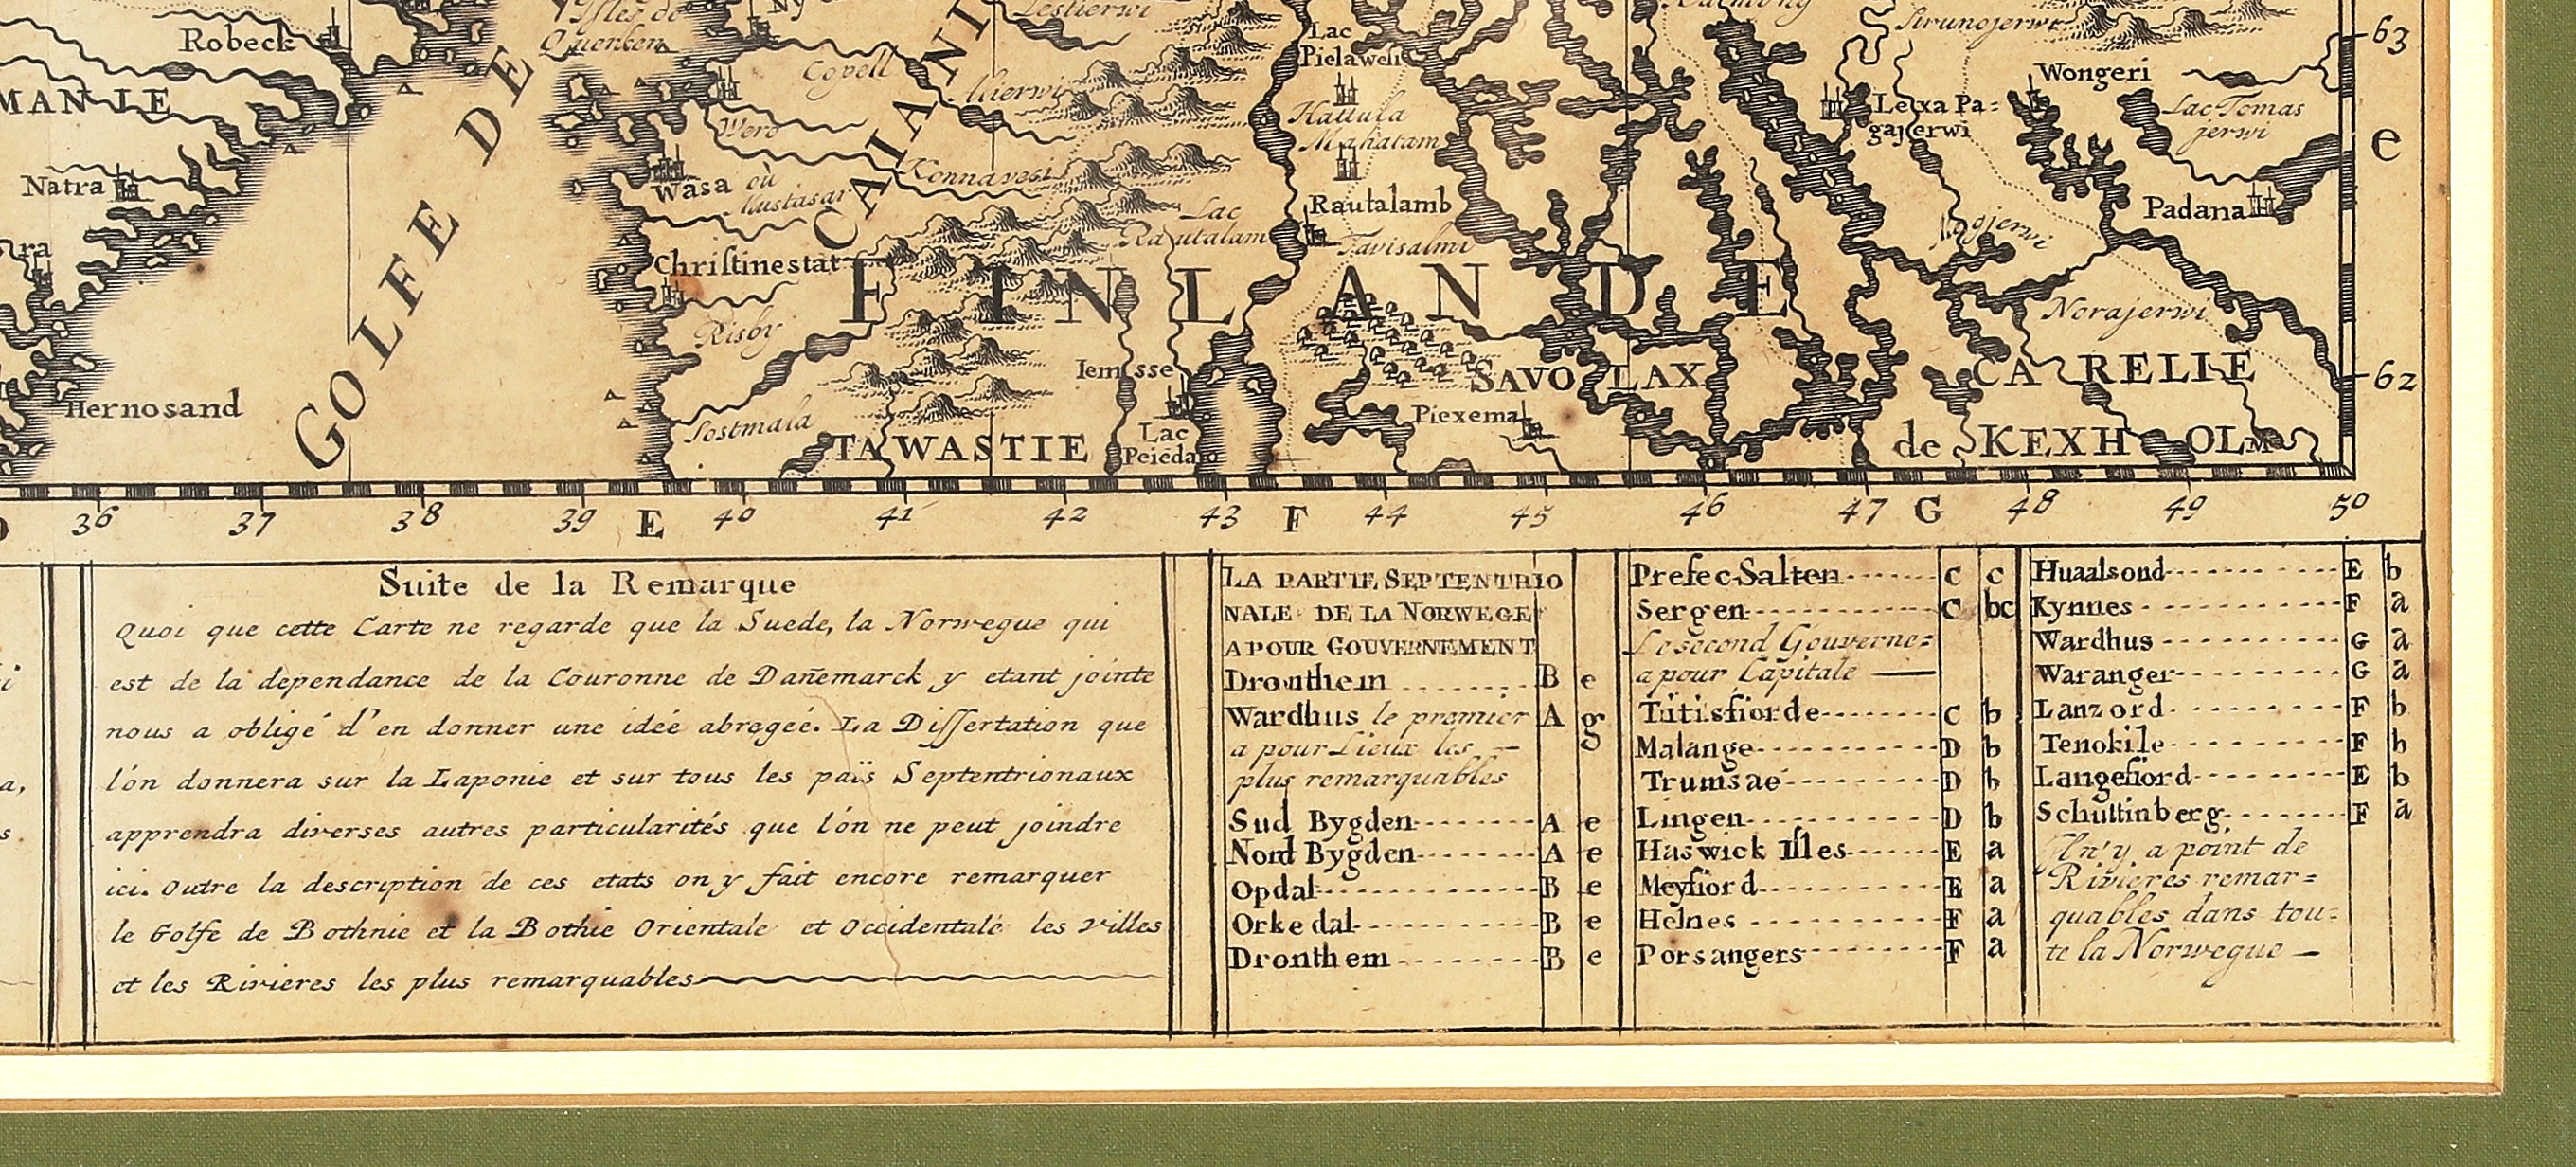 Isles de
Quenken
Robeck
Lestierwi
Lac
Pielawesi
Sirunojerwi
63
Wongeri
Copell
Mierwi
Lac Tomas
jerwi
MAN IE
GOLFE DE
CAIANI
Hattula
Mahatam
Lexa Pa=
gajerwi
e
Wero
Natra
Wasa où
Mustasar
Konnavesi
Lac
Rautalam
Rautalamb
Tavisalmi
Padana
ra
Christinestat
FINLANDE
Norajerwi
Risby
Iemsse
SAVOLAX
CARELIE
62
Hernosand
Sostmala
TAWASTIE
Lac
Peieda
Piexema
de KEXHOLM
36 37 38 39 E 40 41 42 43 F 44 45 46 47 G 48 49 50
Suite de la Remarque
Quoi que cette Carte ne regarde que la Suede, la Norwegue qui
est de la dependance de la Couronne de Dañemarck y etant jointe
nous a obligé d'en donner une idée abregeé. La Dissertation que
l'on donnera sur la Laponie et sur tous les païs Septentrionaux
apprendra diverses autres particularités que l'on ne peut joindre
ici. Outre la description de ces etats on y fait encore remarquer
le Golfe de Bothnie et la Bothie Orientale et Occidentale les villes
et les Rivieres les plus remarquables
LA PARTIE SEPTENTRIO
NALE DE LA NORWEGE
A POUR GOUVERNEMENT
Dronthem B e
Wardhus le premier A g
a pour Lieux les
plus remarquables
Sud Bygden A e
Nord Bygden A e
Opdal B e
Orkedal B e
Dronthem B e
Prefec Salten C c
Sergen C bc
Le second Gouverne=
a pour Capitale
Titisfiorde C b
Malange D b
Trumsae D b
Lingen D b
Haswick Isles E a
Meyfiord E a
Helnes F a
Porsangers F a
Huaalsond E b
Kynnes F a
Wardhus G a
Waranger G a
Lanzord F b
Tenokile F b
Langefiord E b
Schuttinberg F a
Il n'y a point de
Rivieres remar=
quables dans tou=
te la Norwegue